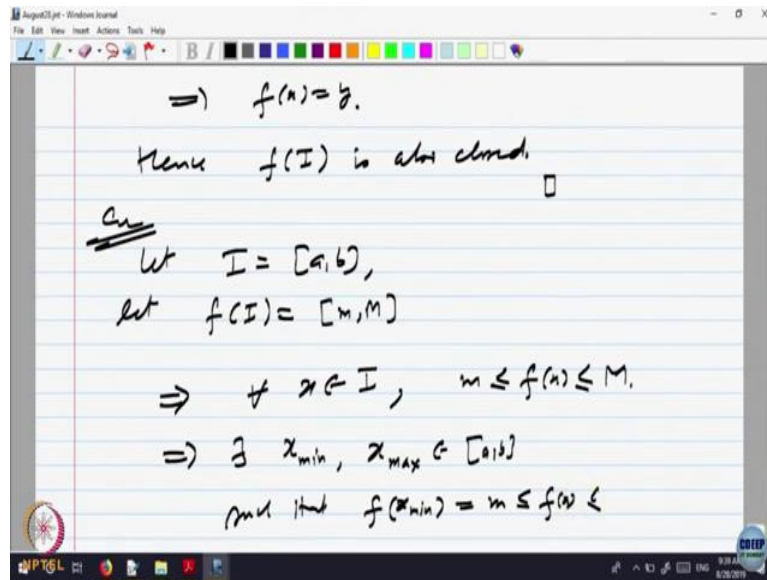 August28.jnt - Windows Journal
File Edit View Insert Actions Tools Help
B I
⇒) f(x) = y.
Hence f(I) is also closed. □
Cor
Let I = [a,b],
let f(I) = [m,M]
⇒ ∀ x ∈ I, m ≤ f(x) ≤ M.
⇒) ∃ x_min, x_max ∈ [a,b]
such that f(x_min) = m ≤ f(x) ≤
NPTEL
CDEEP
ENG
8/28/2019